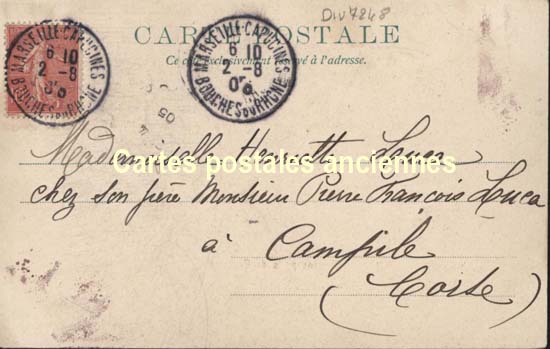 Div7248
CARTE POSTALE
Ce côté exclusivement réservé à l'adresse.
MARSEILLE-CAPUCINES
6 10
2 -8
05
BOUCHES DU RHONE
MARSEILLE-CAPUCINES
6 10
2 -8
05
BOUCHES DU RHONE
05
Mademoiselle Henriette Louca
Cartes postales anciennes
chez son frère Monsieur Pierre François Louca
à Campile
(Corse)